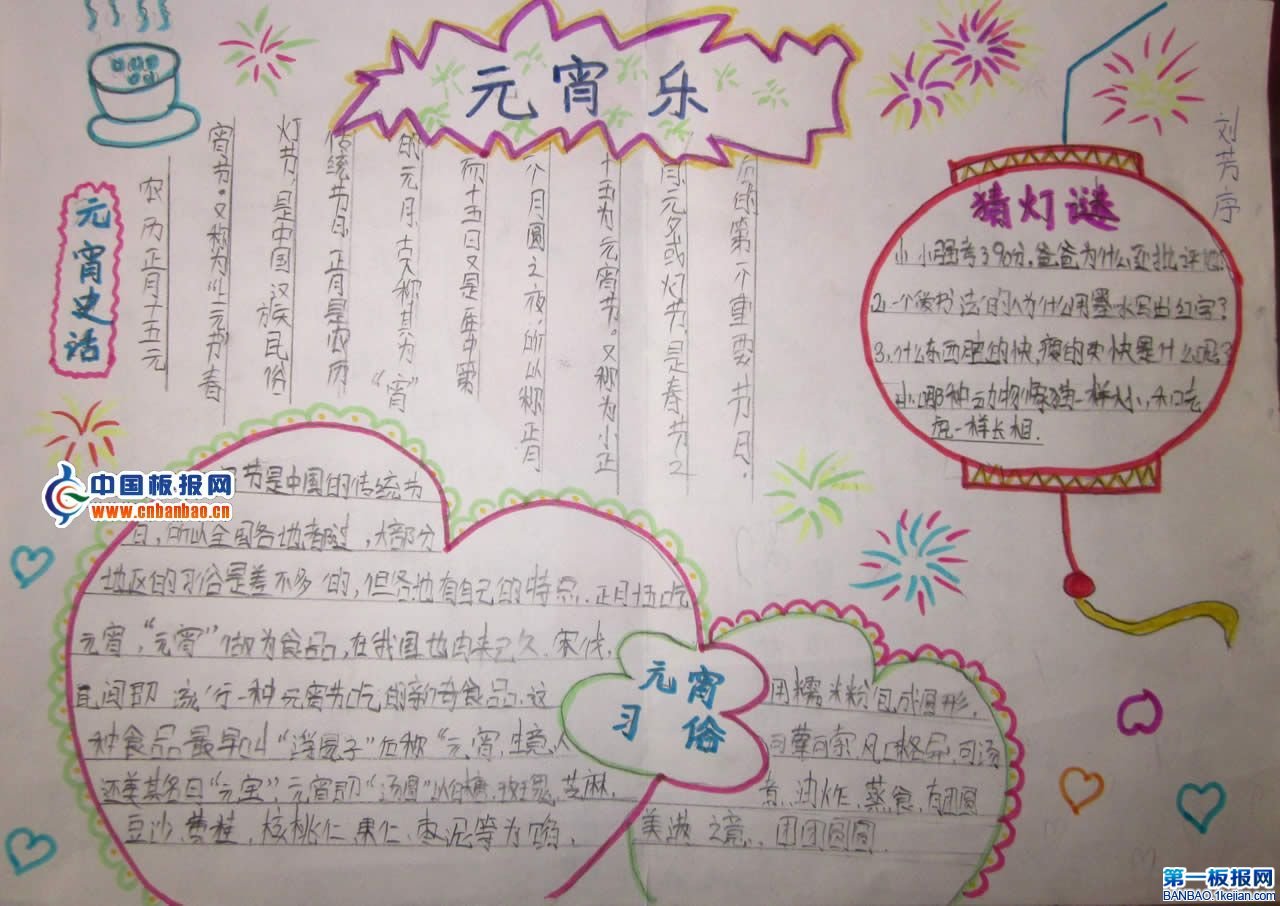 元宵乐
刘芳序
元宵史话
农历正月十五元
宵节。又称为"上元节"春
灯节，是中国汉族民俗
传统节日。正月是农历
的元月，古人称其为"宵"
而十五日又是一年中第
一个月圆之夜，所以称正月
十五为元宵节。又称为小正
月元夕或灯节，是春节之
后的第一个重要节日。
猜灯谜
1. 小胖考390分，爸爸为什么还批评
2. 一个练书法的人为什么用墨水写出红字？
3、什么东西胖的快，瘦的更快是什么呢？
4、哪种动物像猫一样大小，和老
虎一样长相.
节是中国的传统节
日，所以全国各地都过，大部分
地区的习俗是差不多的，但各地有自己的特点.正月十五吃
元宵，"元宵"做为食品，在我国也由来已久.宋代，
民间即流行一种元宵节吃的新奇食品.这
种食品最早叫"浮圆子"后称"元宵，生意人
还美其名曰"元宝"，元宵即"汤圆"以白糖、玫瑰、芝麻、
豆沙、黄桂、核桃仁、果仁、枣泥等为馅，
元宵
习俗
用糯米粉包成圆形，
可荤可素，风味各异，可汤
煮、油炸、蒸食，有团圆
美满之意.团团圆圆
中国板报网
www.cnbanbao.cn
第一板报网
BANBAO.1kejian.com